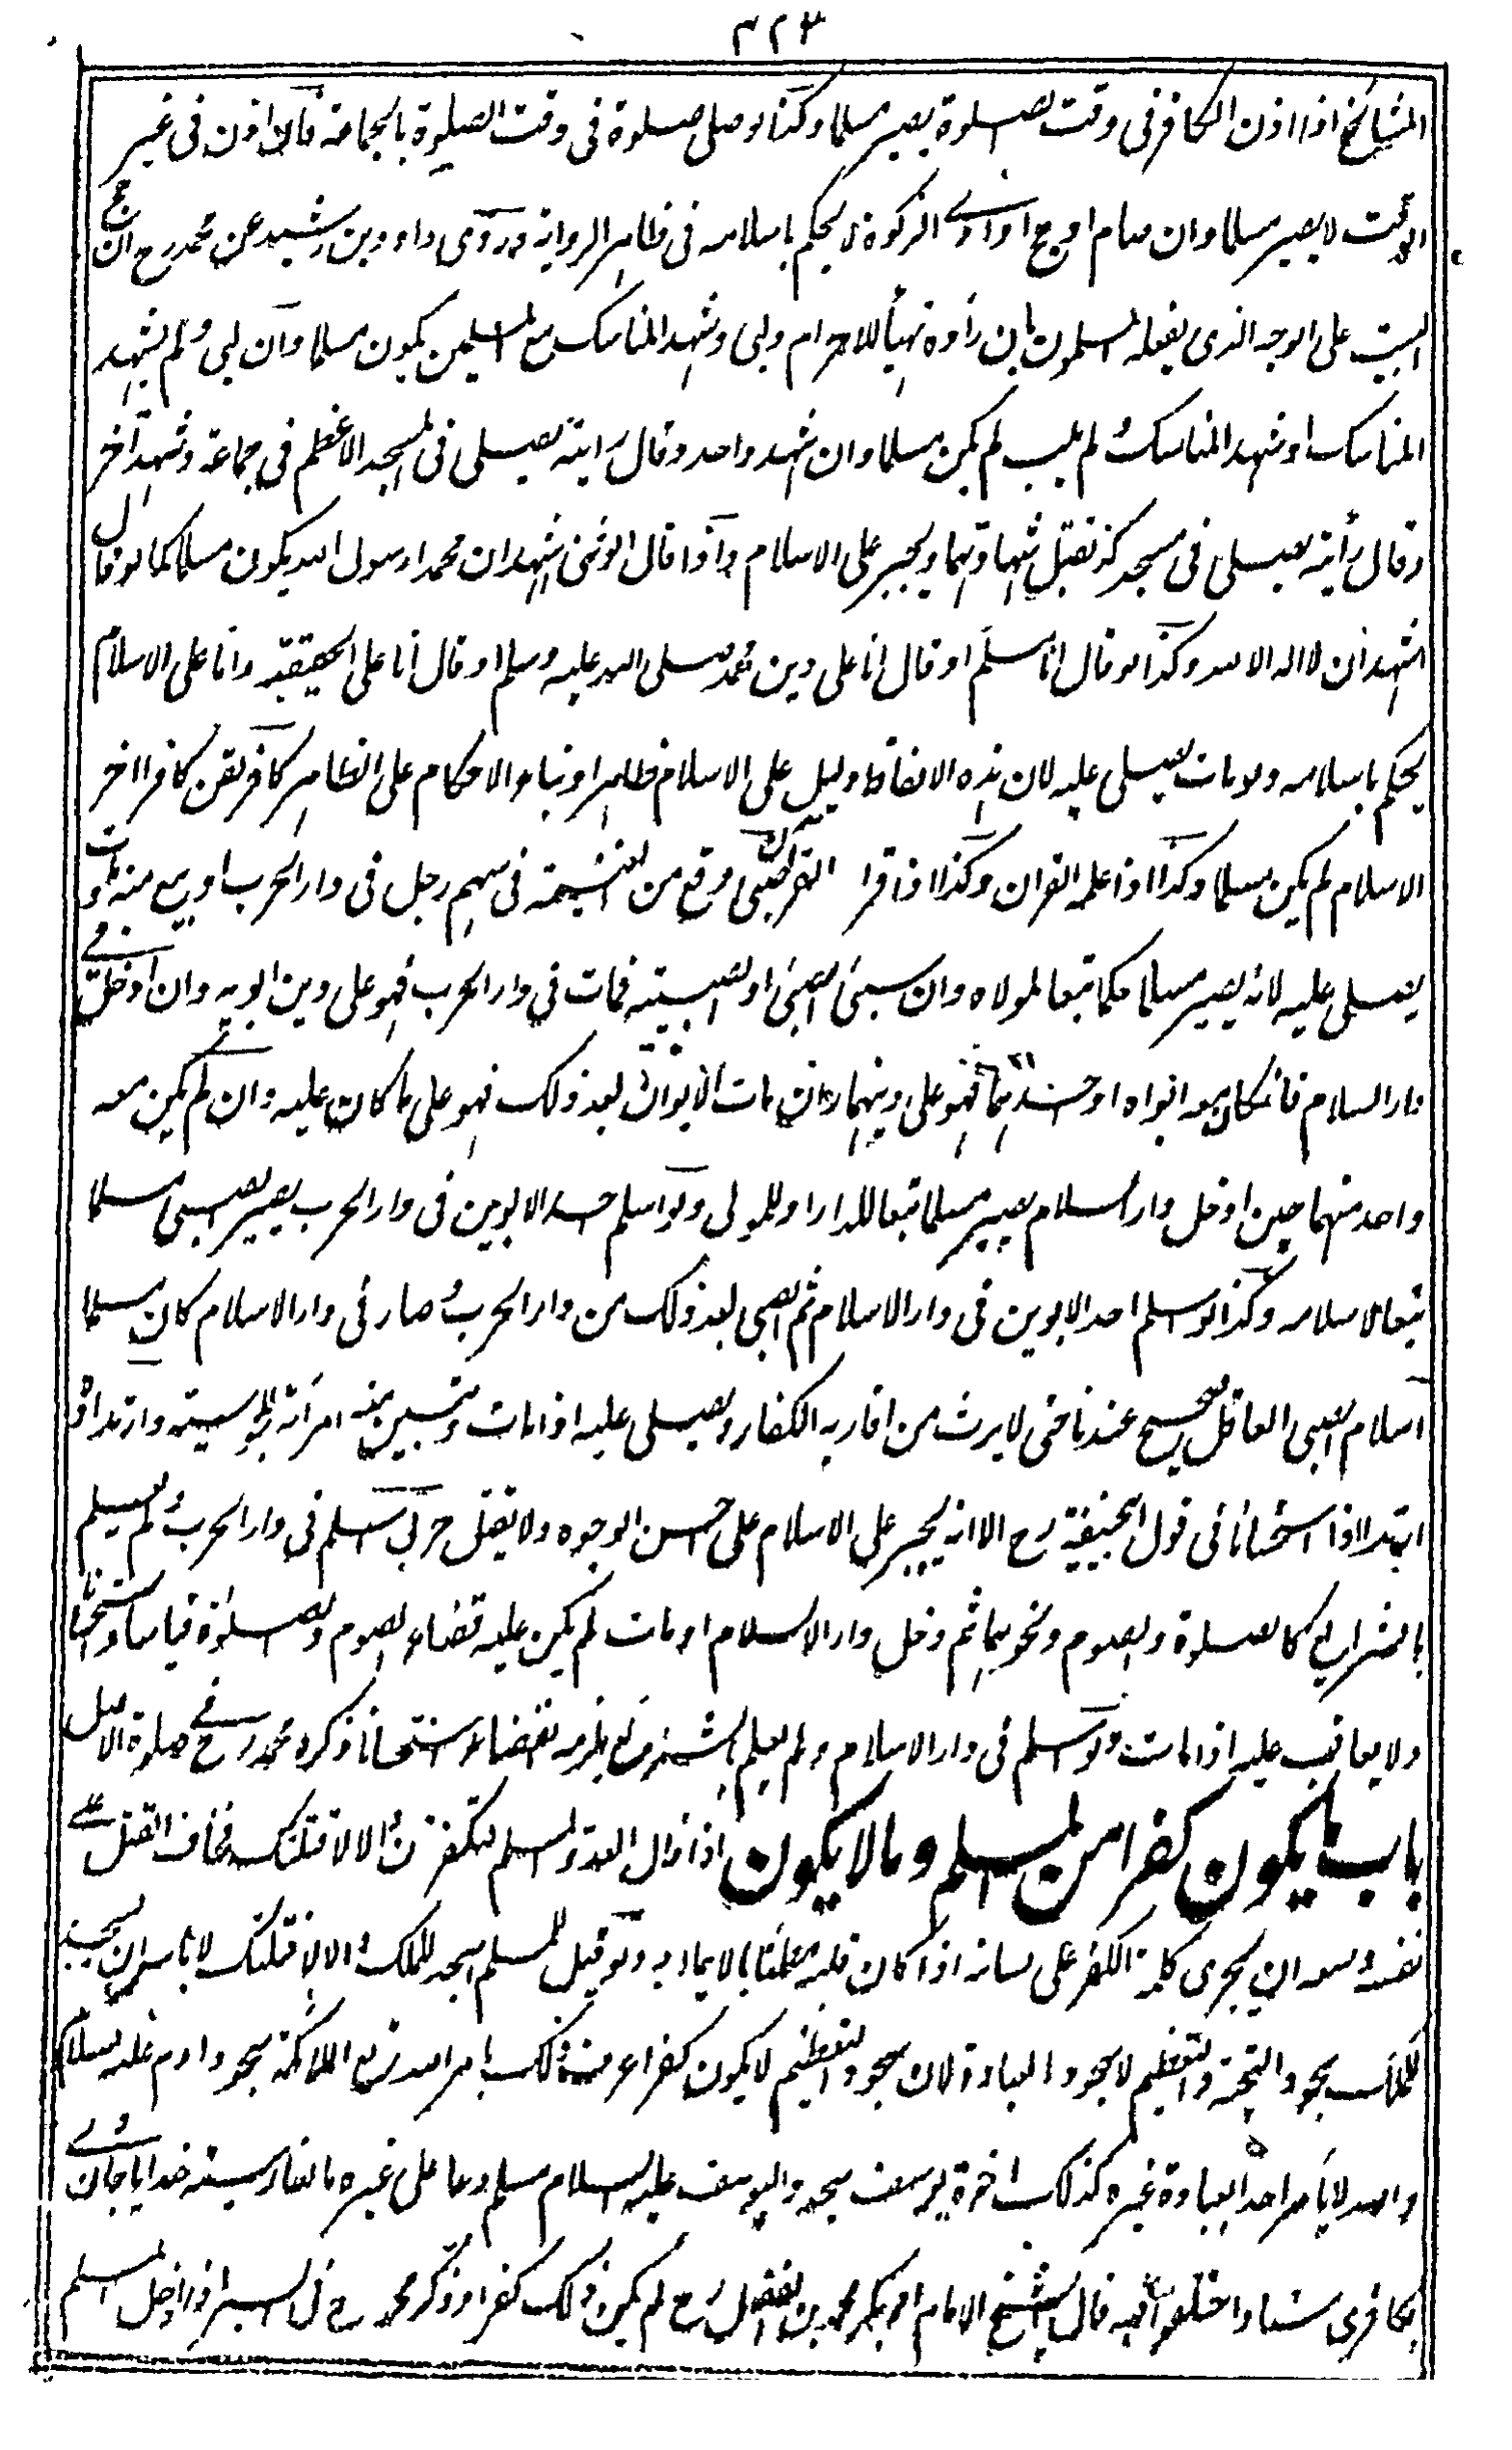 ٣٢٣
المشائخ اذا اذن الكافر فى وقت الصلوة يصير مسلما وكذا لو صلى صلوة فى وقت الصلوة بالجماعة فان اذن فى غير
الوقت لا يصير مسلما وان صام او حج او ادى الزكوة لا يحكم باسلامه فى ظاهر الرواية وروى داود بن رشيد عن محمد رح ان حج
البيت على الوجه الذى يفعله المسلمون بان رأوه تهيأ للاحرام ولبى وشهد المناسك مع المسلمين يكون مسلما وان لبى ولم يشهد
المناسك او شهد المناسك ولم يلب لم يكن مسلما وان شهد واحد وقال رايته يصلى فى المسجد الاعظم فى جماعة وشهد آخر
وقال رأيته يصلى فى مسجد كذا تقبل شهادتهما ويجبر على الاسلام واذا قال الوثنى اشهد ان محمدا رسول الله يكون مسلما كما لو قال
اشهد ان لا اله الا الله وكذا لو قال انا مسلم او قال انا على دين محمد صلى الله عليه وسلم او قال انا على الحقيقة وانا على الاسلام
يحكم باسلامه ولو مات يصلى عليه لان هذه الالفاظ دليل على الاسلام ظاهرا وبناء الاحكام على الظاهر كافر لقن كافرا اخر
الاسلام لم يكن مسلما وكذا اذا علمه القران وكذا اذا قرا القران صبى وقع من الغنيمة فى سهم رجل فى دار الحرب او بيع منه ومات
يصلى عليه لانه يصير مسلما حكما تبعا لمولاه وان سبى الصبى او الصبية فمات فى دار الحرب فهو على دين ابويه وان ادخل فى
دار السلام فانكان معه ابواه او احدهما فهو على دينهما وان مات الابوان بعد ذلك فهو على ما كان عليه وان لم يكن معه
واحد منهما حين ادخل دار السلام يصير مسلما تبعا للدار او للمولى ولو اسلم احد الابوين فى دار الحرب يصير الصبى مسلما
تبعا لاسلامه وكذا لو اسلم احد الابوين فى دار الاسلام ثم الصبى بعد ذلك من دار الحرب وصار فى دار الاسلام كان مسلما
اسلام الصبى العاقل صحيح عندنا حتى لا يرث من اقاربه الكفار ويصلى عليه اذا مات وتبين منه امرأته المجوسية وارتداده
ارتدادا استحسانا فى قول ابيحنيفة رح الا انه يجبر على الاسلام على احسن الوجوه ولا يقتل حربى اسلم فى دار الحرب ولم يعلم
بالشرايع كالصلوة والصوم ونحوهما ثم دخل دار الاسلام او مات لم يكن عليه قضاء الصوم والصلوة قياسا واستحسانا
ولا يعاقب عليه اذا مات ولو اسلم فى دار الاسلام ولم يعلم بالشرائع يلزمه القضاء استحسانا ذكره محمد رح فى صلوة الاصل
باب ما يكون كفرا من المسلم وما لا يكون اذا قال العدو لمسلم لتكفرن والا لاقتلنك فخاف القتل على
نفسه وسعه ان يجرى كلمة الكفر على لسانه اذا كان قلبه مطمئنا بالايمان ولو قيل لمسلم اسجد للملك والا لاقتلنك لا باس بان يسجد
للملك سجود التحية والتعظيم لا سجود العبادة لان سجود التعظيم لا يكون كفرا عرف ذلك بامر الله تع الملائكة بسجود ادم عليه السلام
والله لا يأمر احدا بعبادة غيره كذلك اخوة يوسف سجدوا ليوسف عليه السلام مسلم دعا على غيره بالفارسية خدايا جان وى
بكافرى ستاد اختلفوا فيه قال الشيخ الامام ابو بكر محمد بن الفضل رح لم يكن ذلك كفرا وذكر محمد رح فى السير اذا دخل المسلم